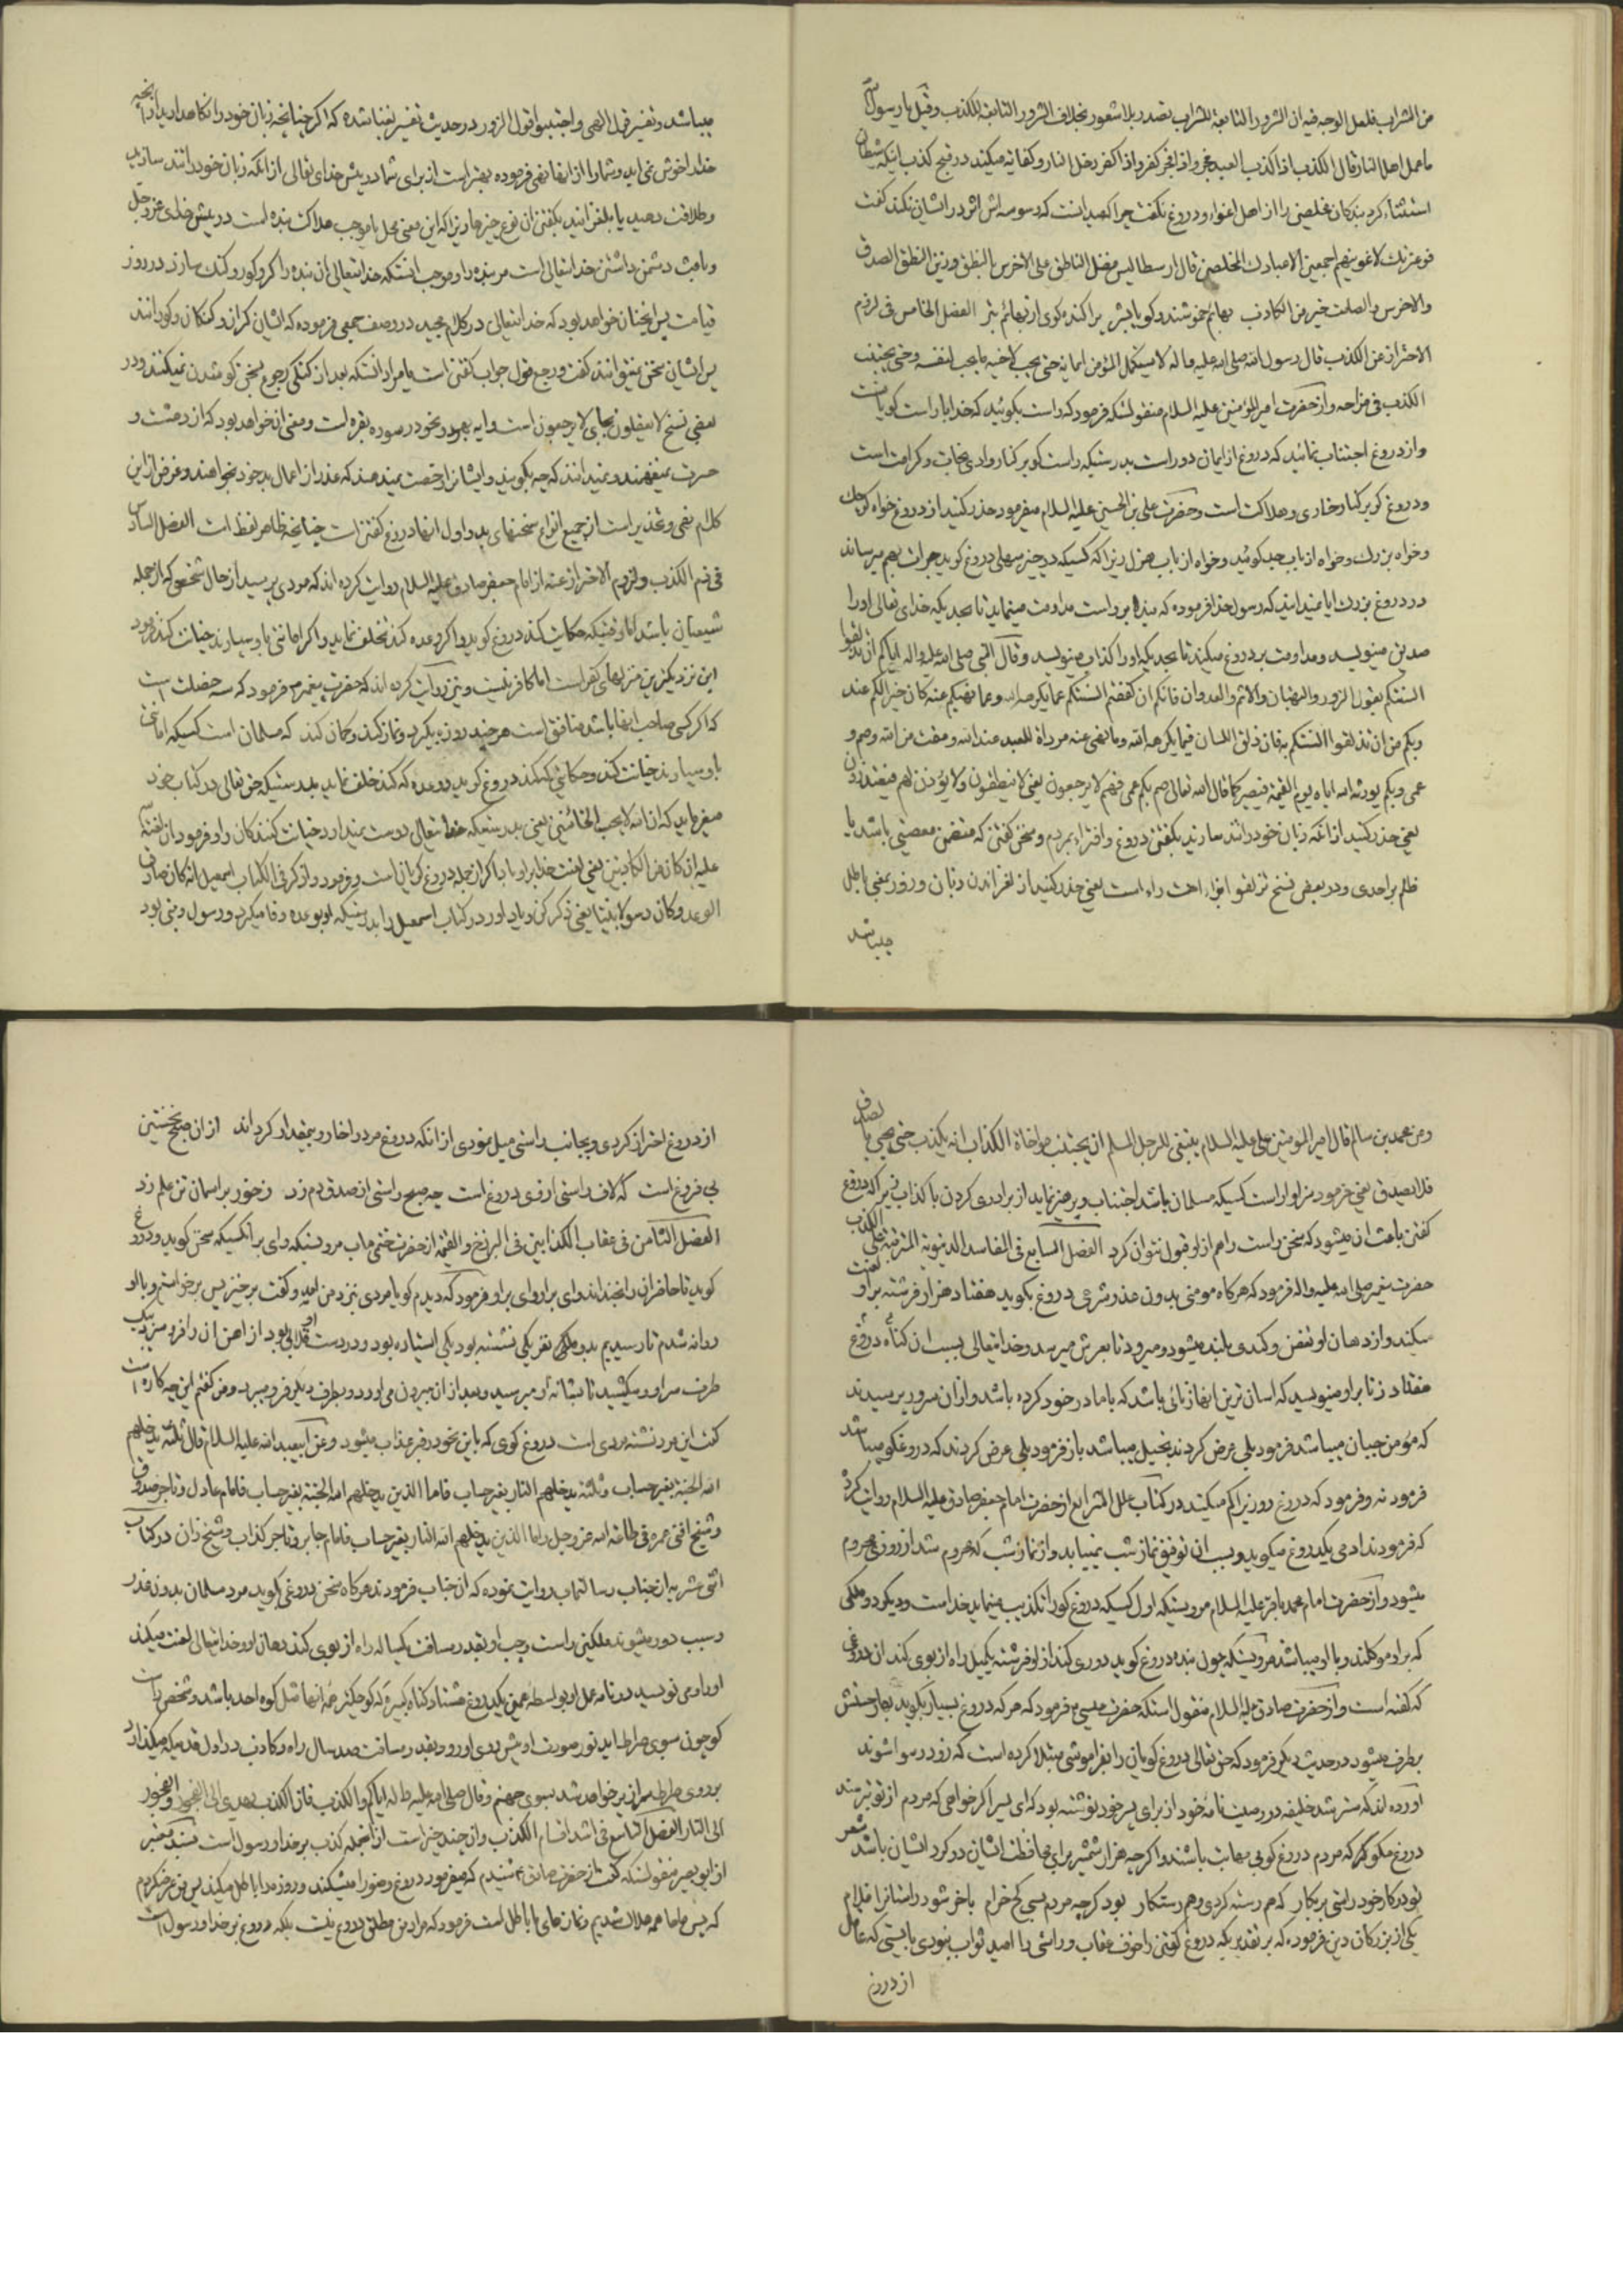 من الشراب فلعل الوجه فيه ان الشرور التابعة للشراب تصدر بلا شعور بخلاف الشرور التابعة للكذب وقيل يا رسول الله
ما عمل اهل النار قال الكذب اذا كذب العبد فجر واذا فجر كفر واذا كفر دخل النار و كفايه ميكند در قبح كذب اينكه شيطان
استثناء كرد بندكان مخلصين را از اهل اغواء و دروغ نكفت چرا كه ميدانست كه وسوسه اش اثر در ايشان نكند كفت
فوعزتك لاغوينهم اجمعين الا عبادك المخلصين قال ارسطاليس فضل الناطق على الاخرس بالنطق وزين النطق الصدق
والاخرس والصامت خير من الكاذب بهائم خموشند و كويا بشر پراكنده كوى از بهائم بتر الفصل الخامس فى لزوم
الاحتراز عن الكذب قال رسول الله صلى الله عليه واله لا يستكمل المؤمن ايمانه حتى يحب لاخيه ما يحب لنفسه وحتى يجتنب
الكذب فى مزاحه و از حضرت امير المؤمنين عليه السلام منقولستكه فرمود كه راست بكوئيد كه خدا با راست كويانست
و از دروغ اجتناب نمائيد كه دروغ از ايمان دور است بدرستيكه راست كو بر كنار وادى نجات و كرامت است
و دروغ كو بر كنار خوارى و هلاكت است و حضرت على بن الحسين عليه السلام ميفرمود حذر كنيد از دروغ خواه كوچك
و خواه بزرك و خواه از باب جد كوئيد و خواه از باب هزل زيرا كه كسيكه در چيز سهلى دروغ كويد جرات بهم ميرساند
در دروغ بزرك ايا نميدانيد كه رسول خدا فرموده كه بنده بر راست مداومت مينمايد تا بحديكه خداى تعالى او را
صديق مينويسد و مداومت بر دروغ ميكند تا بحديكه او را كذاب مينويسد وقال النبى صلى الله عليه واله اياكم ان تذلقوا
السنتكم بقول الزور والبهتان والاثم والعدوان فانكم ان كففتم السنتكم عما يكرهه الله وعما نهيكم عنه كان خيرا لكم عند
ربكم من ان تذلقوا السنتكم به فان ذلق اللسان فيما يكرهه الله وما نهى عنه مرداة للعبد عند الله ومقت من الله وصم و
عمى وبكم يورثه الله اياه يوم القيمة فيصير كما قال الله تعالى صم بكم عمى فهم لا يرجعون يعنى لا ينطقون ولا يؤذن لهم فيعتذرون
يعنى حذر كنيد از انكه زبان خود را تند سازيد بكفتن دروغ و افتراء بمردم و سخن كفتن كه متضمن معصيتى باشد يا
ظلم بر احدى و در بعض نسخ تزلقوا بزاء است يعنى حذر كنيد از لغزاندن زبان و زور بمعنى باطل
ميباشد
ميباشد و تفسير قول الهى واجتنبوا قول الزور در حديث تفسير بغنا شده كه اكر چنانچه زبان خود را نكاهداريد از انچه
خدا را خوش نمى ايد و شما را از انها نهى فرموده بهتر است از براى شما در پيش خداى تعالى از انكه زبان خود را تند سازيد
و طلاقت دهيد يا بلغزانيد بكفتن ان نوع چيزها زيرا كه اين معنى محل يا موجب هلاكت بنده است در پيش خداى عز وجل
و باعث دشمن داشتن خدايتعالى است مر بنده را و موجب انستكه خدايتعالى ان بنده را كر و كور و كنك سازد در روز
قيامت پس انچنان خواهد بود كه خدايتعالى در كلام مجيد در وصف جمعى فرموده كه ايشان كران و كنكان و كورانند
پس ايشان سخن نميتوانند كفت و رجع قول جواب كفتن است يا مراد انستكه بعد از كنكى رجوع بسخن كو شدن نميكنند و در
بعضى نسخ لا يعقلون بجاى لا يرجعون است و ايه بهر دو نحو در سوره بقره است و معنى ان خواهد بود كه از دهشت و
حسرت نميفهمند و نميدانند كه چه بكويند و ايشانرا رخصت نميدهند كه عذر از اعمال بد خود بخواهند و غرض از اين
كلام نهى و تحذير است از جميع انواع سخنهاى بد و اول انها دروغ كفتن است چنانچه ظاهر لفظ است الفصل السادس
فى ذم الكذب ولزوم الاحتراز عنه از امام جعفر صادق عليه السلام روايت كرده اند كه مردى پرسيد از حال شخصى كه از جمله
شيعيان باشد اما وقتيكه حكايت كند دروغ كويد و اكر وعده كند تخلف نمايد و اكر امانتى باو سپارند خيانت كند فرمود
اين نزديكترين منزلهاى كفر است اما كافر نيست و نيز روايت كرده اند كه حضرت پيغمبر م فرمود كه سه خصلت است
كه اكر كسى صاحب انها باشد منافق است هر چند روزه بكيرد و نماز كند و كمان كند كه مسلمان است كسيكه امانتى
باو سپارند خيانت كند و حكايتى كه كند دروغ كويد و وعده كه كند خلف نمايد بدرستيكه حق تعالى در كتاب خود
ميفرمايد كه ان الله لا يحب الخائنين يعنى بدرستيكه خدا يتعالى دوست نميدارد خيانت كنندكان را و فرمود ان لعنة الله
عليه ان كان من الكاذبين يعنى لعنت خدا بر او باد اكر از جمله دروغ كويان است و فرمود واذكر فى الكتاب اسمعيل انه كان صادق
الوعد وكان رسولا نبيا يعنى ذكر كن و ياد اور در كتاب اسمعيل را بدرستيكه او بوعده وفا ميكرد و رسول و نبى بود
وعن محمد بن سالم قال امير المؤمنين على عليه السلام ينبغى للرجل المسلم ان يجتنب مواخاة الكذاب انه يكذب حتى يجىء بالصدق
فلا يصدق يعنى فرمود سزاوار است كسيكه مسلمان باشد اجتناب و پرهيز نمايد از برادرى كردن با كذاب زيرا كه دروغ
كفتن باعث ان ميشود كه سخن راست را هم از او قبول نتوان كرد الفصل السابع فى المفاسد الدنيوية المترتبة على الكذب
حضرت پيغمبر صلى الله عليه واله فرمود كه هر كاه مومنى بدون عذر شرعى دروغ بكويد هفتاد هزار فرشته بر او لعنت
ميكند و از دهان او تعفن و كندى بلند ميشود و ميرود تا بعرش ميرسد و خدايتعالى بسبب ان كناه دروغ
هفتاد زنا بر او مينويسد كه اسان ترين انها زنائى باشد كه با مادر خود كرده باشد و از ان سرور پرسيدند
كه مؤمن جبان ميباشد فرمود بلى عرض كردند بخيل ميباشد باز فرمود بلى عرض كردند كه دروغكو ميباشد
فرمود نه و فرمود كه دروغ روزيرا كم ميكند در كتاب علل الشرايع از حضرت امام جعفر صادق عليه السلام روايت كرده
كه فرمودند ادمى يكدروغ ميكويد و بسبب ان توفيق نماز شب نمييابد و از نماز شب كه محروم شد از روزى محروم
ميشود و از حضرت امام محمد باقر عليه السلام مرويستكه اول كسيكه دروغ كو را تكذيب مينمايد خداست و ديكر دو ملكى
كه بر او موكلند و با او ميباشند مرويستكه چون بنده دروغ كويد دورى كند از او فرشته بكميل راه از بوى كند ان دروغى
كه كفته است و از حضرت صادق عليه السلام منقول استكه حضرت عيسى م فرمود كه هر كه دروغ بسيار بكويد بها و حسنش
بر طرف ميشود در حديث ديكر فرمود كه حق تعالى دروغ كويان را بفراموشى مبتلا كرده است كه زود رسوا شوند
اورده اند كه خليفه در وصيت نامه خود از براى پسر خود نوشته بود كه اى پسر اكر خواهى كه مردم از تو بترسند
دروغ مكو كه مردم دروغ كو بى مهابت باشند و اكر چه هزار شمشير براى محافظت ايشان در كرد ايشان باشد شعر
تو در كار خود راستى بر بكار كه هم رسته كردى و هم رستكار بود كرچه مردم بسى كج خرام باخر شود راستانرا غلام
يكى از بزركان دين فرموده كه بر تقدير يكه دروغ كفتن را خوف عقاب و راستى را اميد ثواب نبودى بايستى كه عاقل
از دروغ
از دروغ احتراز كردى و بجانب راستى ميل نمودى از انكه دروغ مرد را خوار و بيمقدار كرداند از ان صبح نخستين
بى فروغ است كه لاف راستى از وى دروغ است چه صبح راستى از صدق دم زد ز خور بر اسمان زرين علم زد
الفصل الثامن فى عقاب الكذابين فى البرزخ والقيمة از حضرت ختمى ماب مرويستكه واى بر انكسيكه سخن كويد و دروغ
كويد تا حاضران را بخنداند واى بر او واى بر او فرمود كه ديدم كويا مردى نزد من امد و كفت برخيز پس برخواستم و با او
روانه شدم تا رسيديم بدو نفر يكى نشسته بود يكى ايستاده بود و در دست او قلابى بود از اهن ان را فرو ميبرد بيك
طرف سر او و ميكشيد تا بشانه او ميرسيد و بعد از ان بيرون مى اورد و بطرف ديكر فرو ميبرد و من كفتم اين چه كاره است
كفت اين مرد نشسته مردى است دروغ كوى كه باين نحو در قبر عذاب ميشود وعن ابيعبد الله عليه السلام قال ثلثة يدخلهم
الله الجنة بغير حساب وثلثة يدخلهم النار بغير حساب فاما الذين يدخلهم الله الجنة بغير حساب فامام عادل وتاجر صدوق
وشيخ افنى عمره فى طاعة الله عز وجل واما الذين يدخلهم الله النار بغير حساب فامام جابر وتاجر كذاب وشيخ زان در كتاب
اثنى عشريه از جناب رسالتماب روايت نموده كه ان جناب فرمودند هر كاه سخن دروغى بكويد مرد مسلمان بدون عذر
و سبب دور ميشوند ملكين راست و چپ او بقدر مسافت يكساله راه از بوى كند دهان او و خدايتعالى لعنت ميكند
او را و مى نويسد در نامه عمل او بواسطه همين يكدروغ هشتاد كناه كبيره كه كوچكترين انها مثل كوه احد باشد و شخص راست
كو چون سوى صراط ايد نور صورت او پيش روى او رود بقدر مسافت صد سال راه و كاذب در اول قدميكه ميكذارد
بر روى صراط سرازير خواهد شد بسوى جهنم وقال صلى الله عليه واله اياكم والكذب فان الكذب يهدى الى الفجور والفجور
الى النار الفصل التاسع فى اشد اقسام الكذب و ان چند چيز است از انجمله كذب بر خدا و رسول است بسند معتبر
از ابو بصير منقولستكه كفت از حضرت صادق م شنيدم كه ميفرمود دروغ وضو را ميشكند و روزه را باطل ميكند پس من عرض كردم
كه پس ما همه هلاك شديم و نمازهاى ما باطل است فرمود كه مراد من مطلق دروغ نيست بلكه دروغ بر خدا و رسول است